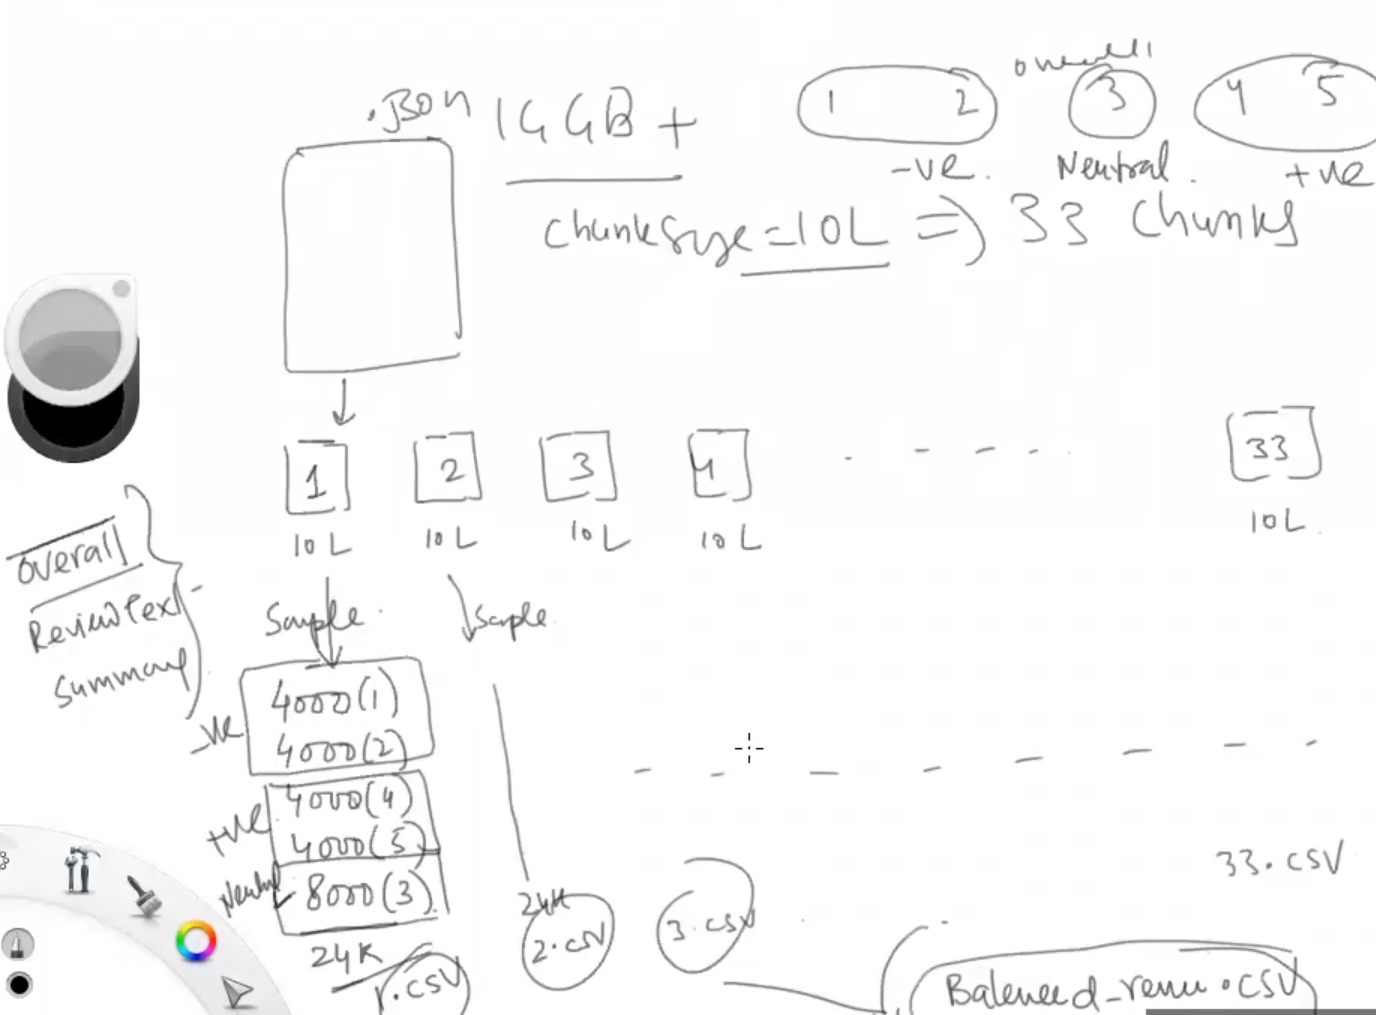 overall
.Json 14GB +
1 2 3 4 5
-ve. Neutral. +ve
chunksize=10L => 33 chunks
1 2 3 4 - - - - 33
10L 10L 10L 10L 10L
overall
ReviewText
Summary
Sample Sample
-ve
4000(1)
4000(2)
+ve
4000(4)
4000(5)
Neutral
8000(3)
24K
1.CSV
24K
2.CSV
3.CSV
33.CSV
.CSV